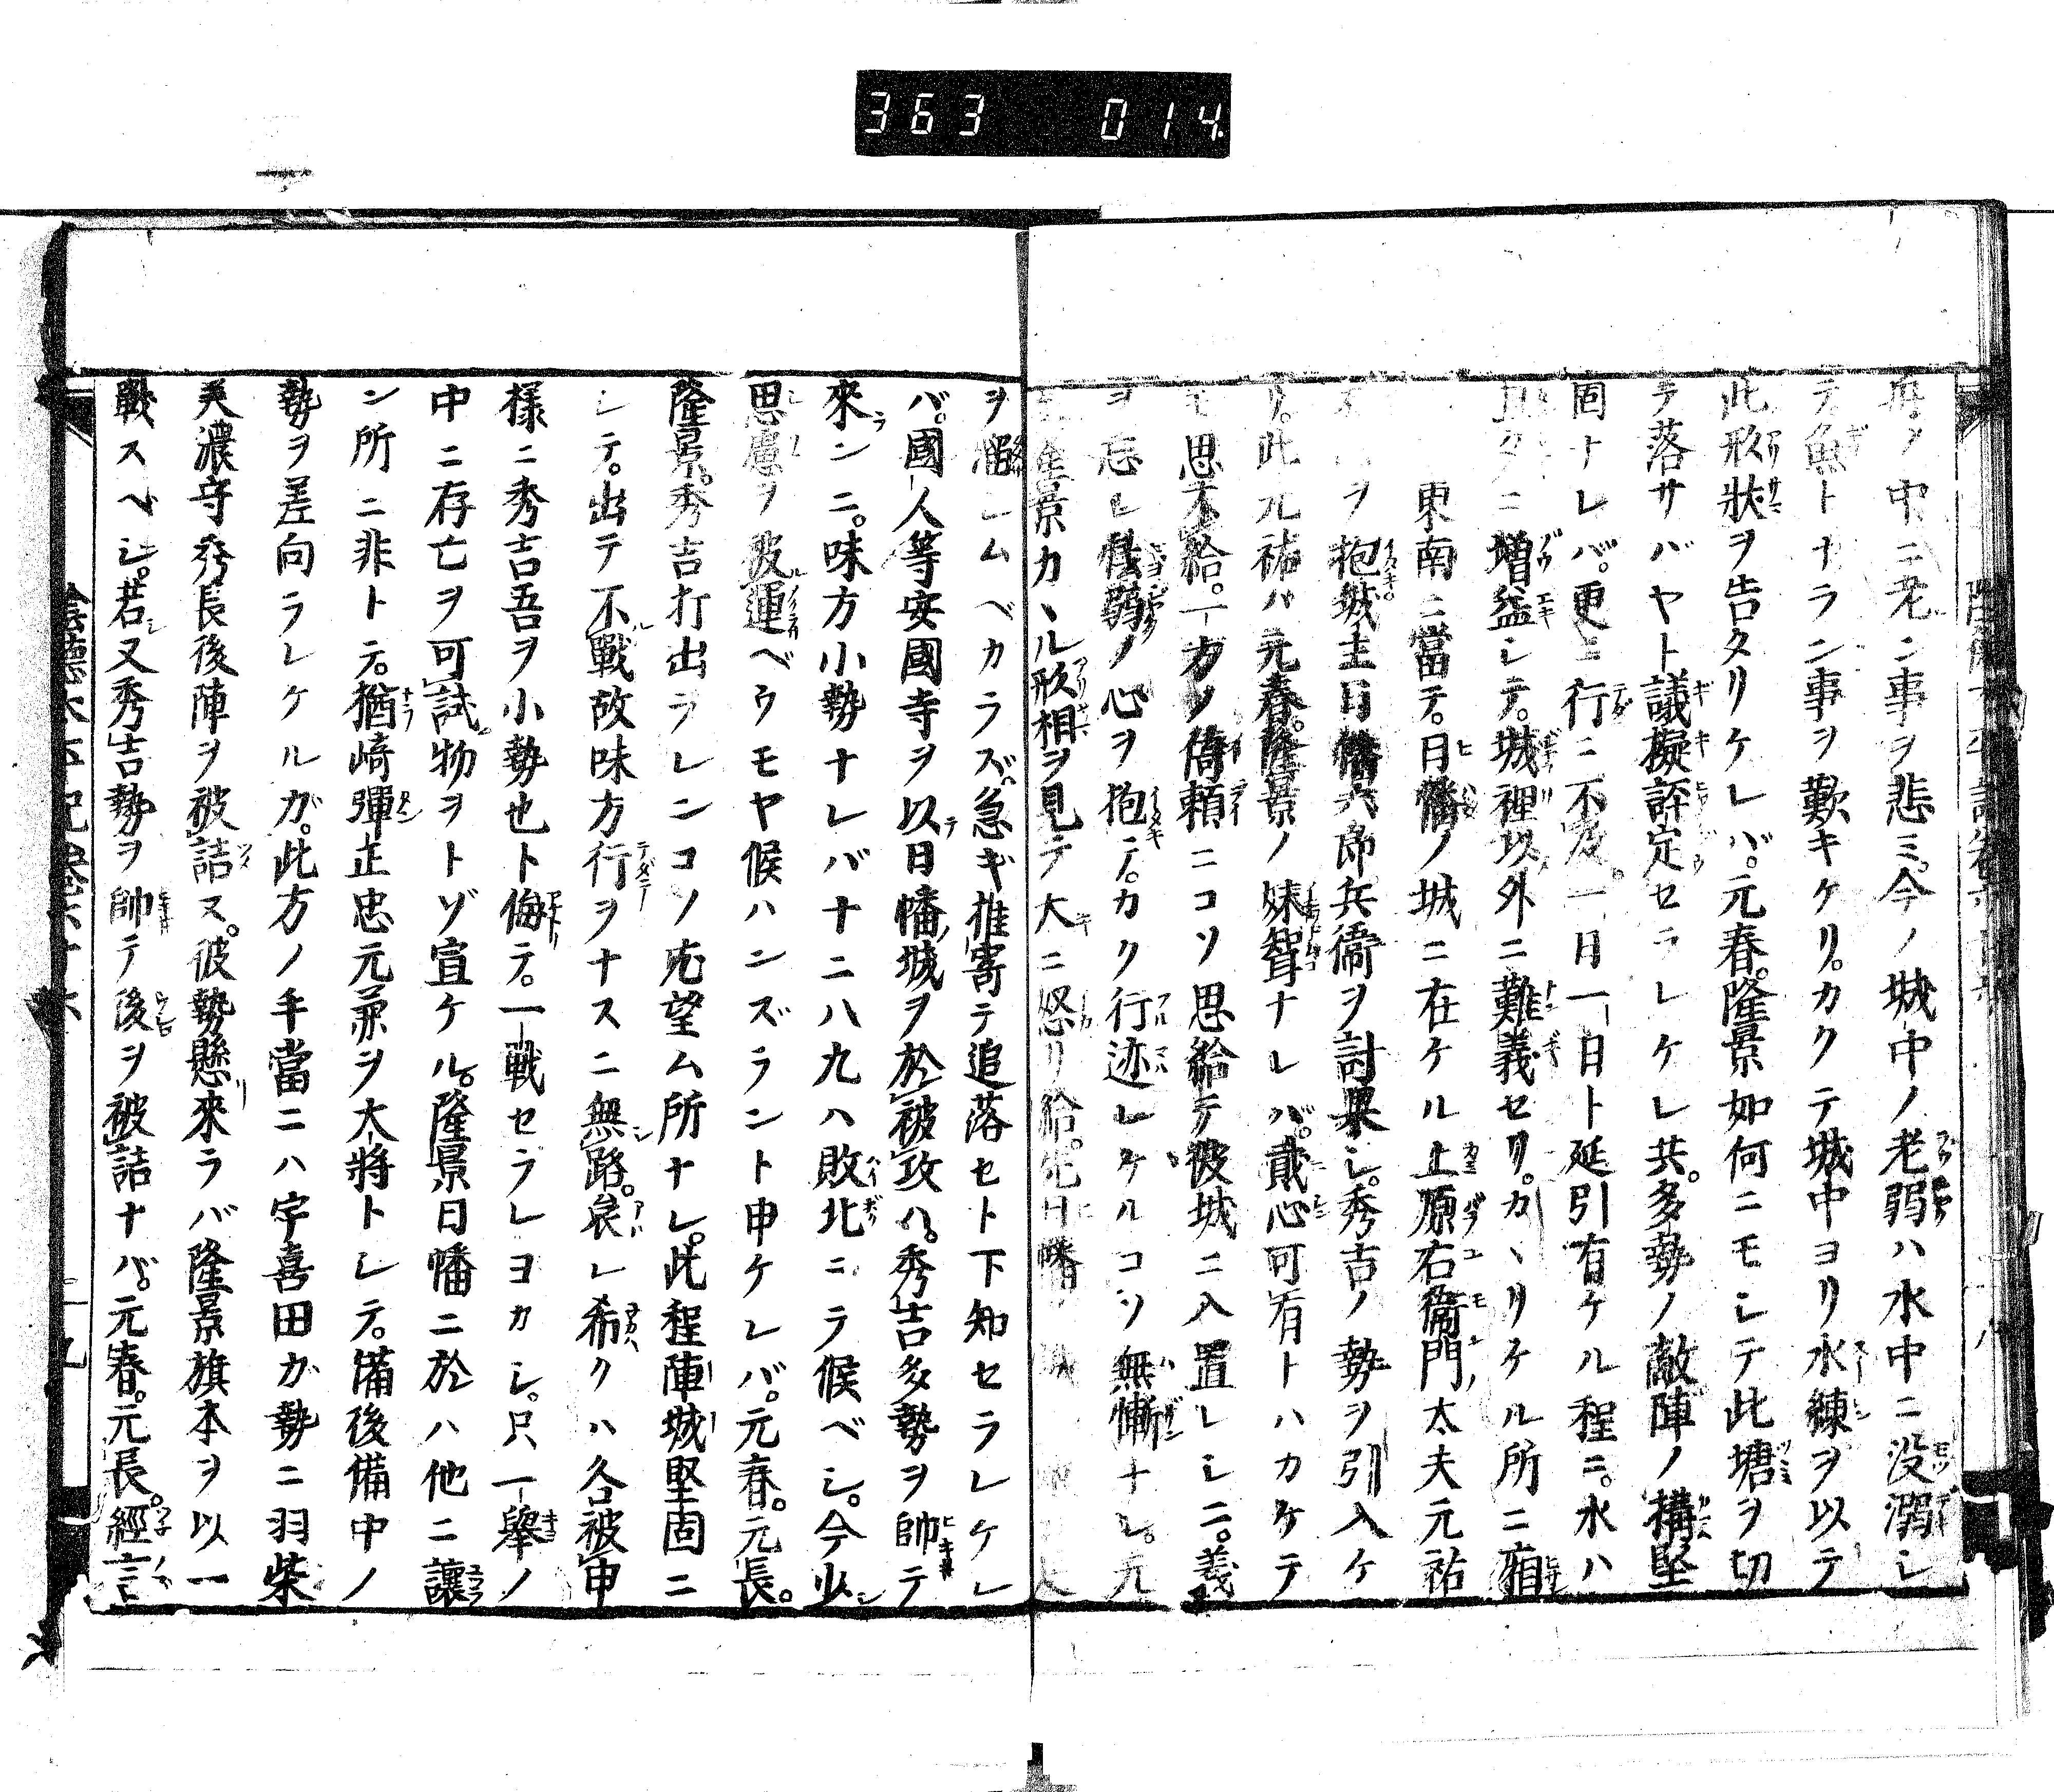 363 014
舟ノ中ニ老ン事ヲ悲ミ。今ノ城中ノ老弱ハ水中ニ没溺シ
テ魚トナラン事ヲ歎キケリ。カクテ城中ヨリ水練ヲ以テ
此形状ヲ告タリケレバ。元春。隆景如何ニモシテ此塘ヲ切
テ落サバヤト議擬評定セラレケレ共。多勢ノ敵陣ノ構堅
固ナレバ。更ニ行ニ不及。一日一日ト延引有ケル程ニ。水ハ
ニ増益シテ。城裡以外ニ難義セリ。カヽリケル所ニ宿
東南ニ當テ。日幡ノ城ニ在ケル上原右衞門太夫元祐
ヲ抱城主日幡六郎兵衞ヲ討果シ。秀吉ノ勢ヲ引入ケ
リ。此元祐ハ元春。隆景ノ妹聟ナレバ。貳心可有トハカケテ
モ思不給。一方ノ倚頼ニコソ思給テ彼城ニ入置レシニ。義
ヲ忘レ怯弱ノ心ヲ抱テ。カク行迹レケルコソ無慚ナレ。元
隆景カヽル形相ヲ見テ大ニ怒リ給。先日幡ノ城
ヲ惱シムベカラズ。急ギ推寄テ追落セト下知セラレケレ
バ。國人等安國寺ヲ以日幡城ヲ於被攻ハ。秀吉多勢ヲ帥テ
來ンニ。味方小勢ナレバ十ニ八九ハ敗北ニテ候ベシ。今少
思慮ヲ被運ベウモヤ候ハンズラント申ケレバ。元春。元長。
隆景。秀吉打出ラレンコソ庶望ム所ナレ。此程陣城堅固ニ
シテ。出テ不戰故味方行ヲナスニ無路。哀レ希クハ各被申
様ニ秀吉吾ヲ小勢也ト侮テ。一戰セラレヨカシ。只一擧ノ
中ニ存亡ヲ可試物ヲトゾ宣ケル。隆景日幡ニ於ハ他ニ讓
ン所ニ非トテ。猶崎彈正忠元兼ヲ大將トシテ。備後備中ノ
勢ヲ差向ラレケルガ。此方ノ手當ニハ宇喜田ガ勢ニ羽柴
美濃守秀長後陣ヲ被詰ス。彼勢懸來ラバ隆景旗本ヲ以一
戰スベシ。若又秀吉勢ヲ帥テ後ヲ被詰ナバ。元春。元長。經言
陰德太平記卷六十六 十九